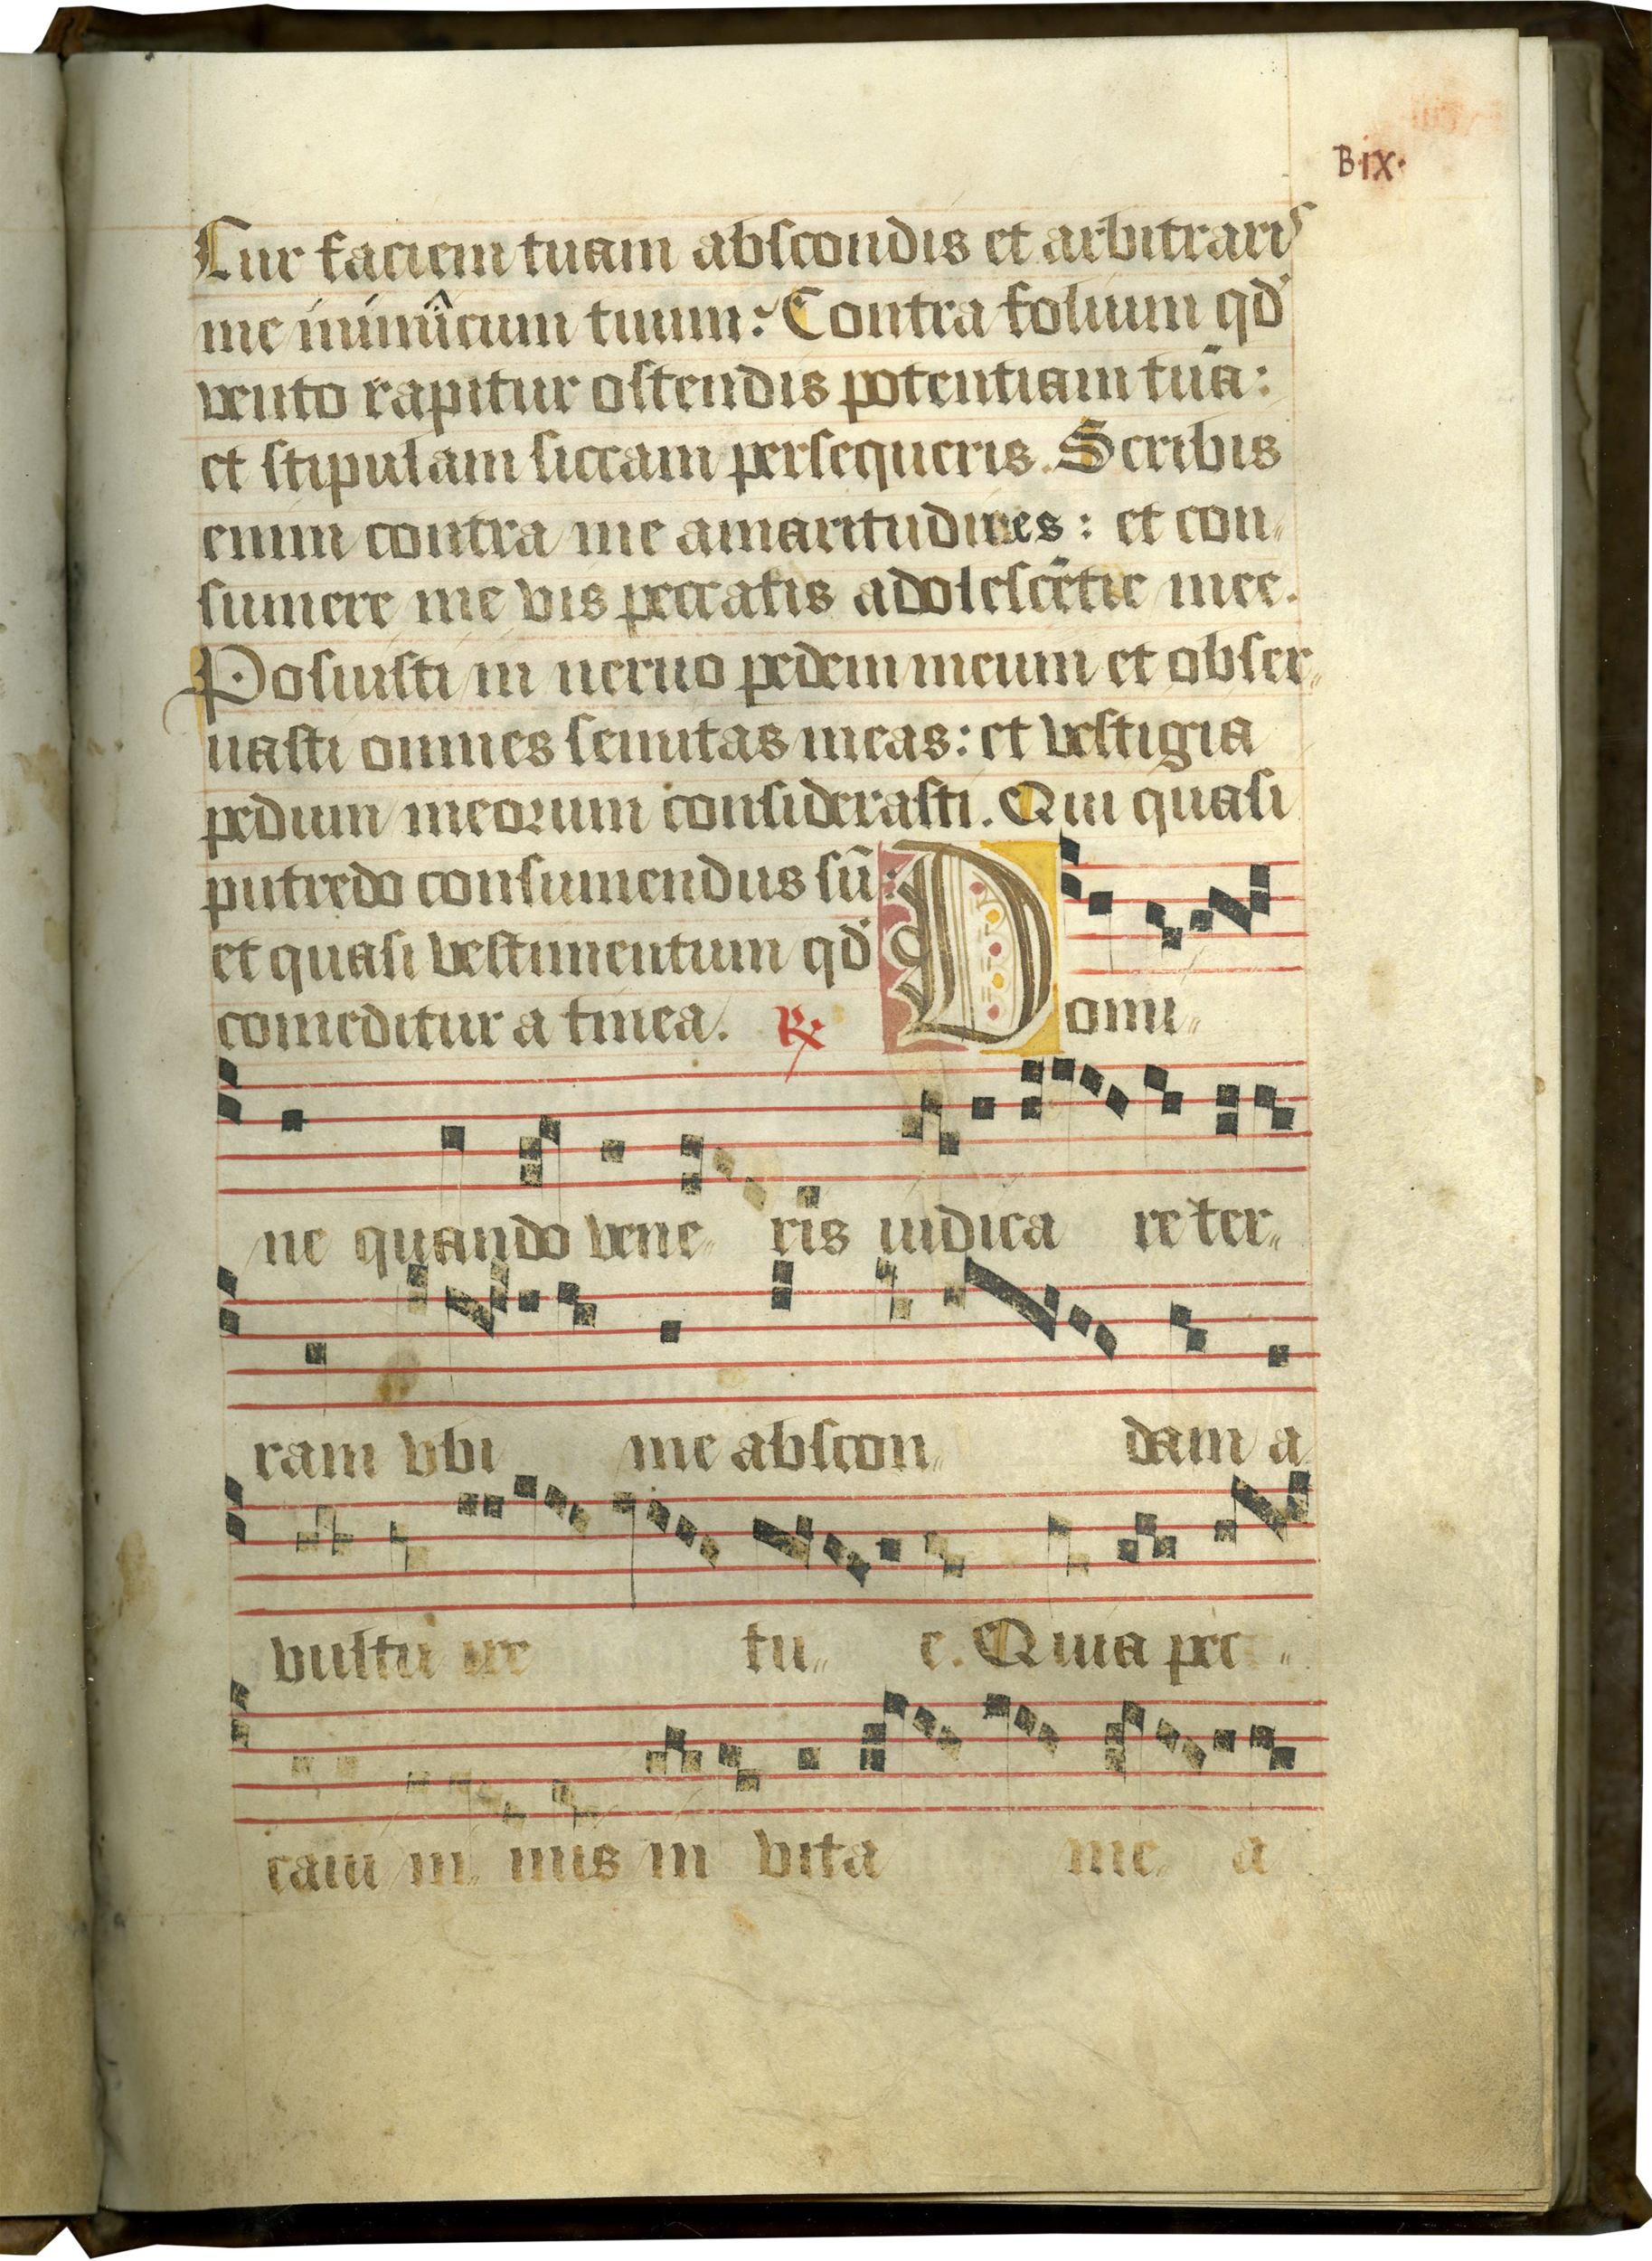 B·ıx·
Cur faciem tuam abscondis et arbitraris
me inimicum tuum? Contra folium qd'
vento rapitur ostendis potentiam tuā:
et stipulam siccam persequeris. Scribis
enim contra me amaritudines: et con„
sumere me vis peccatis adolescētie mee.
Posuisti in neruo pedem meum et obser„
uasti omnes semitas meas: et vestigia
pedum meorum considerasti. Qui quasi
putredo consumendus sū:
et quasi vestimentum qd'
comeditur a tinea. ℞ Domi„
ne quando vene„ ris iudica re ter„
ram vbi me abscon„ dam a
vultu ire tu„ e. Quia pec„
caui in„ mis in vita me„ a